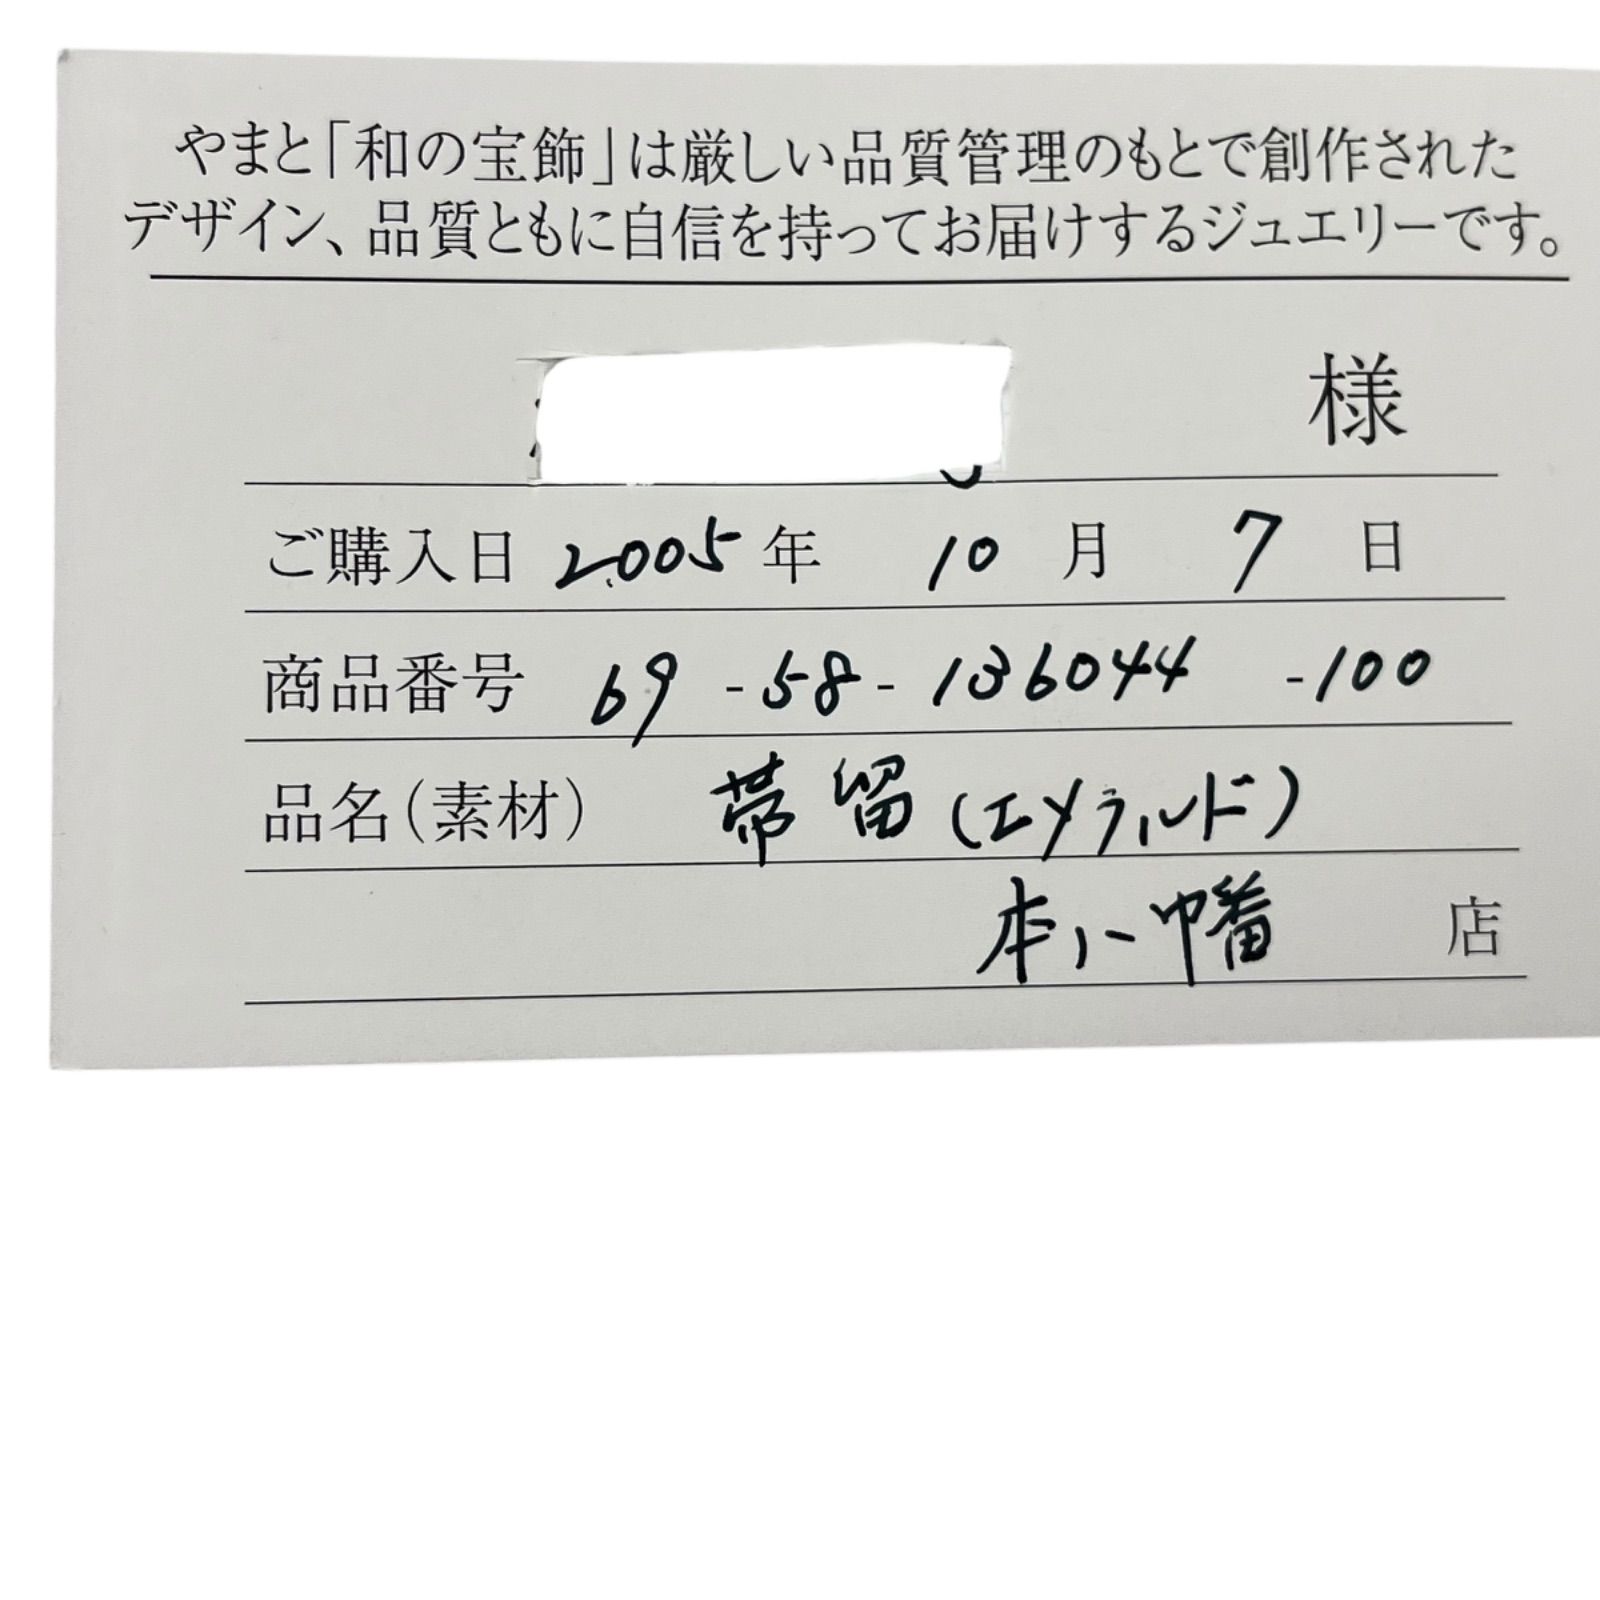 やまと「和の宝飾」は厳しい品質管理のもとで創作された
デザイン、品質ともに自信を持ってお届けするジュエリーです。
様
ご購入日 2005年 10月 7日
商品番号 69-58-136044-100
品名(素材) 帯留(エメラルド)
本八幡 店